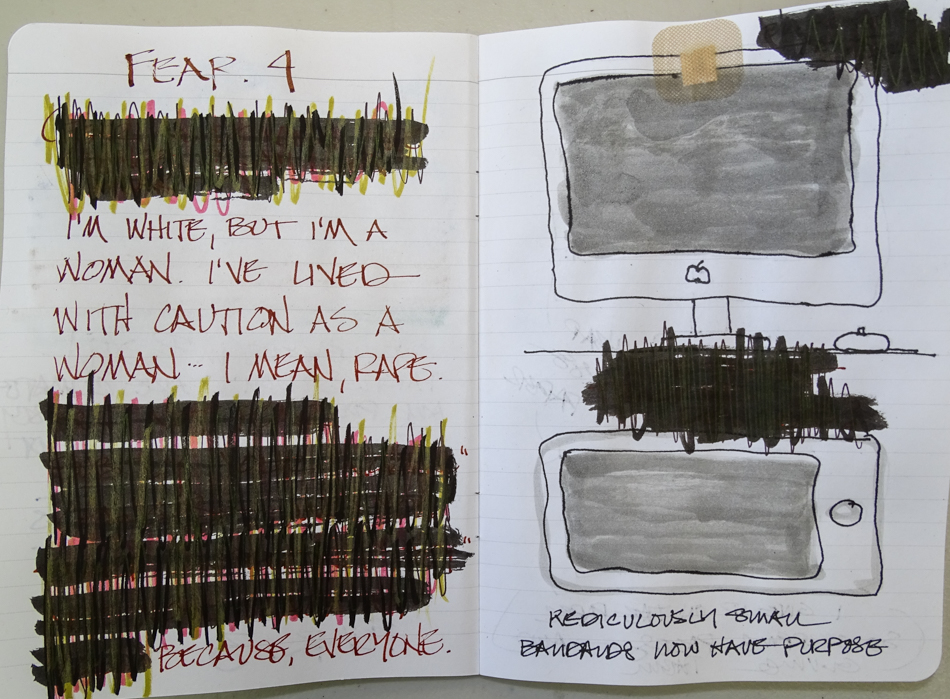 FEAR. 4
I'M WHITE, BUT I'M A
WOMAN. I'VE LIVED
WITH CAUTION AS A
WOMAN... I MEAN, RAPE.
BECAUSE, EVERYONE.
REDICULOUSLY SMALL
BANDAIDS NOW HAVE PURPOSE